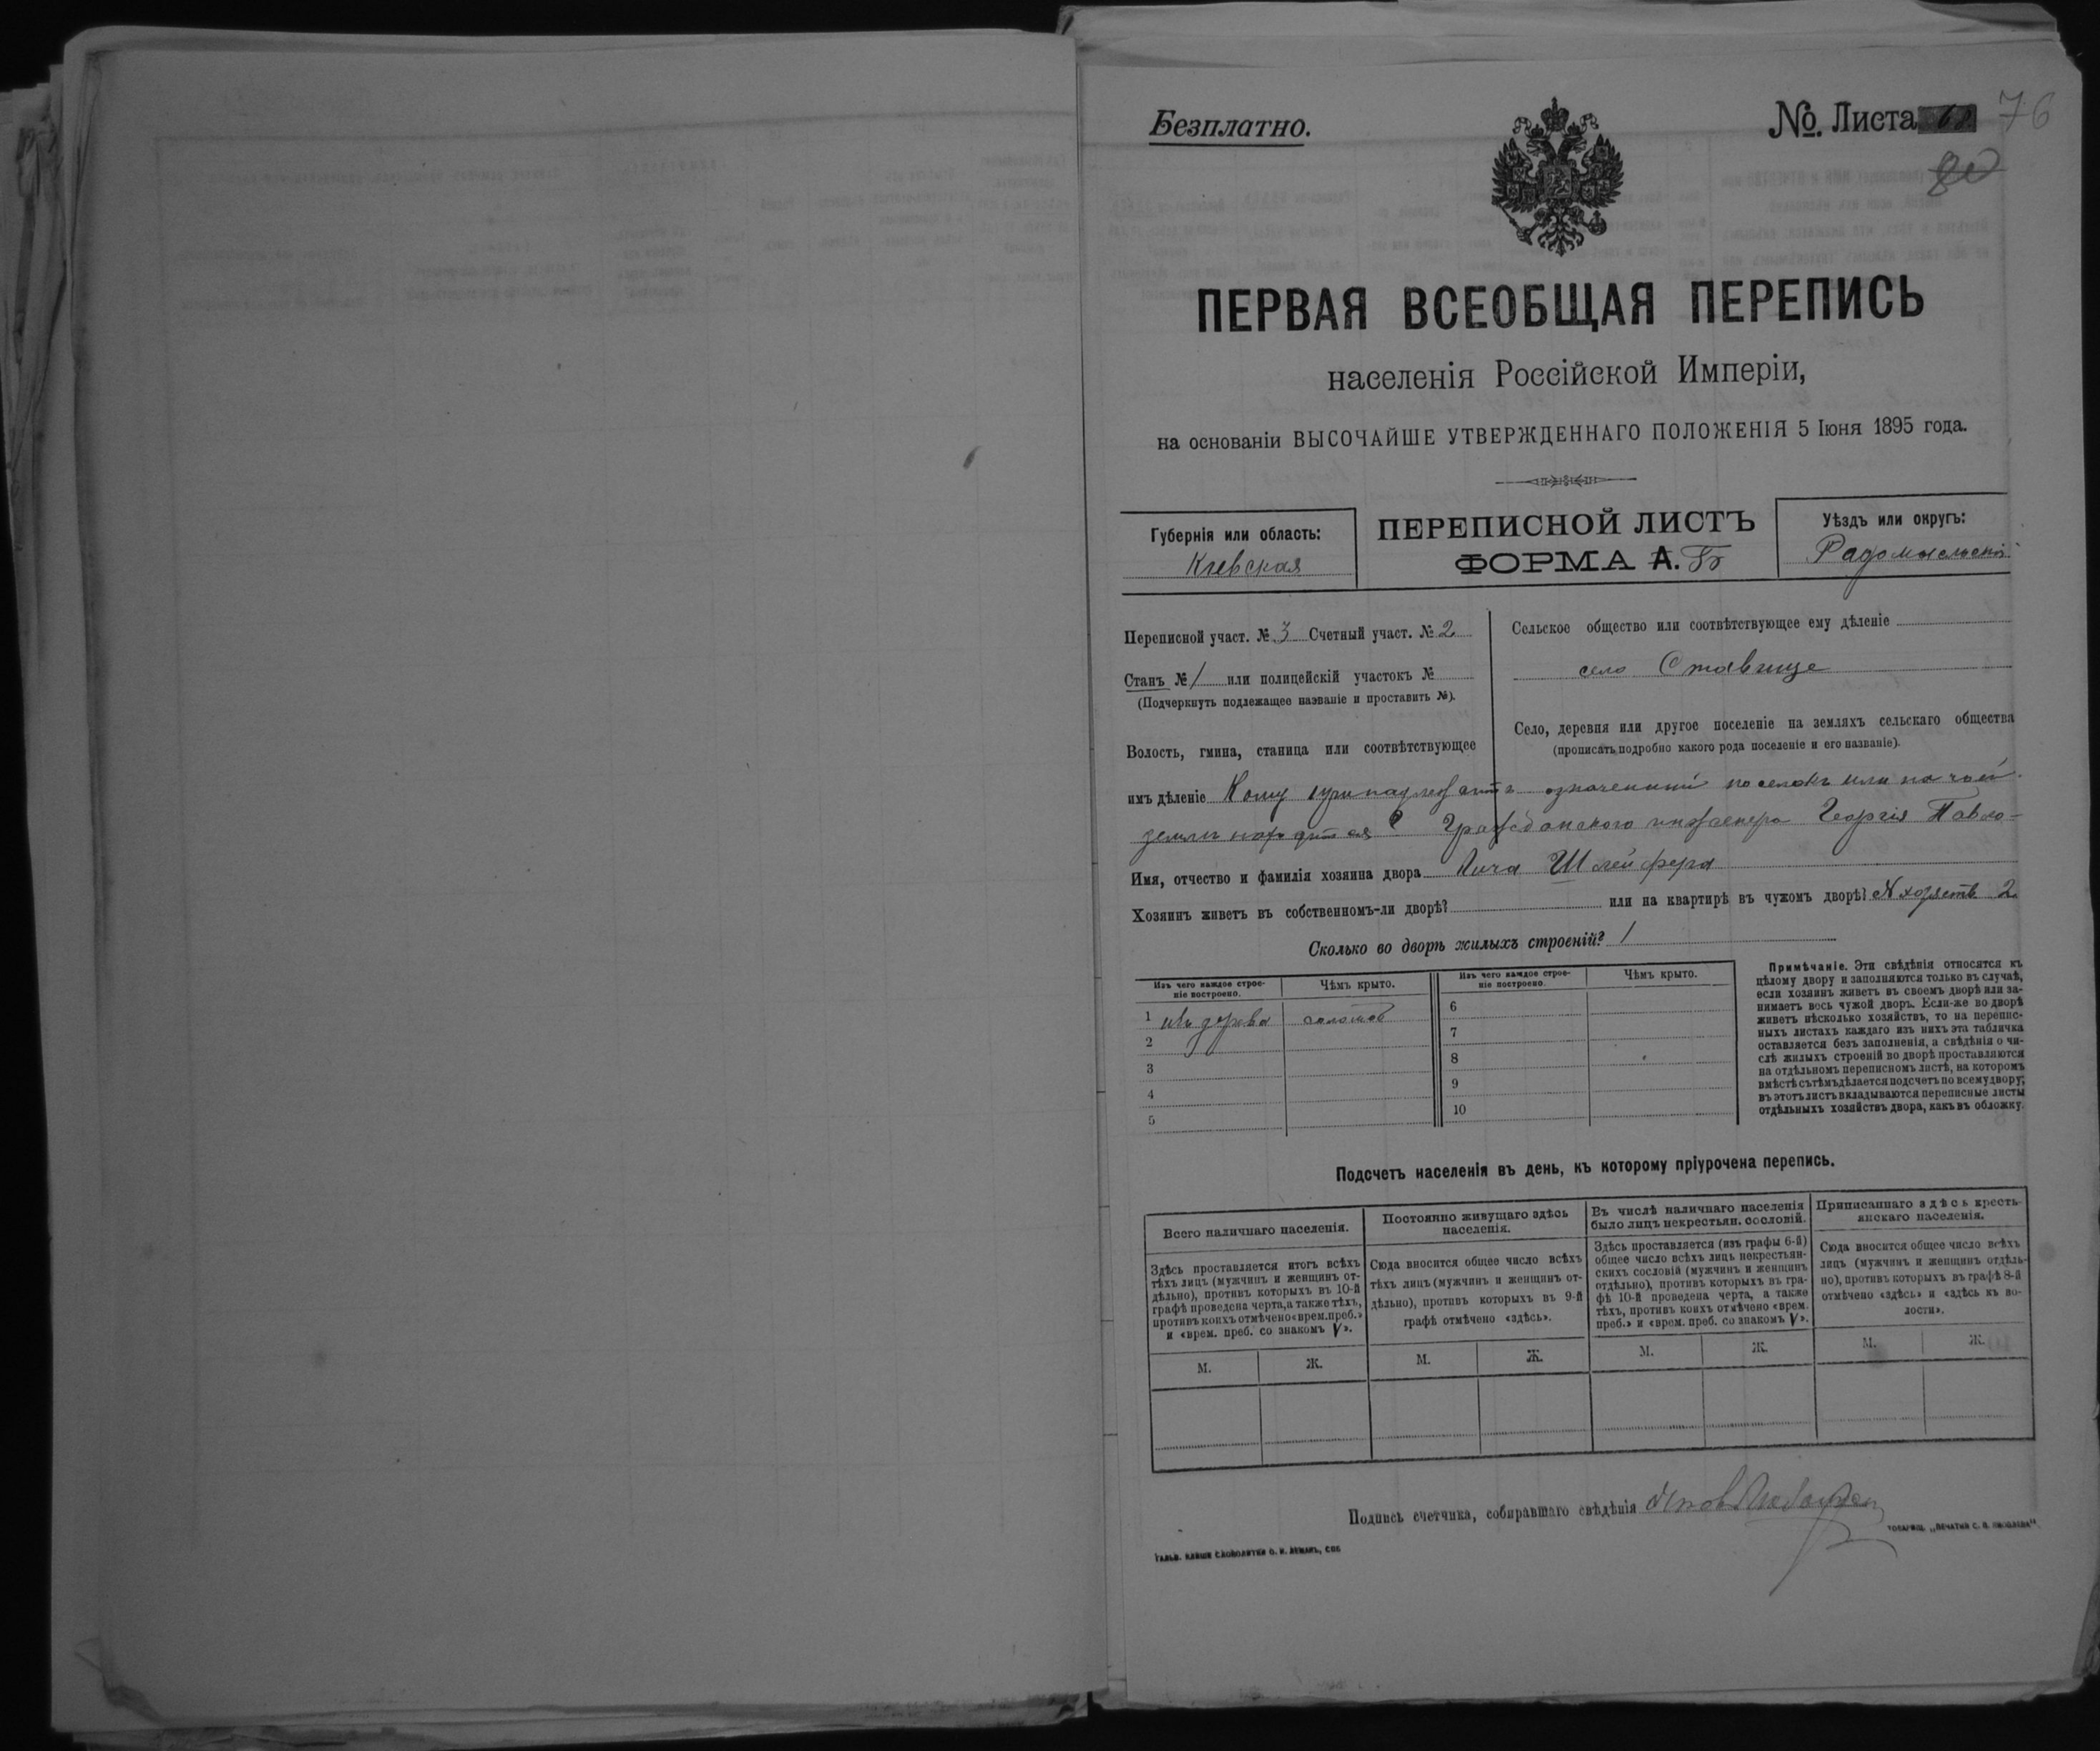 Безплатно.
№. Листа 68 76
80
ПЕРВАЯ ВСЕОБЩАЯ ПЕРЕПИСЬ
населенія Россійской Имперіи,
на основаніи ВЫСОЧАЙШЕ УТВЕРЖДЕННАГО ПОЛОЖЕНІЯ 5 Іюня 1895 года.
Губернія или область:
Кіевская
ПЕРЕПИСНОЙ ЛИСТЪ
ФОРМА А. Б
Уѣздъ или округъ:
Радомысльскій
Переписной участ. № 3 Счетный участ. № 2
Станъ № 1 или полицейскій участокъ №
(Подчеркнуть подлежащее названіе и проставить №).
Волость, гмина, станица или соотвѣтствующее
Сельское общество или соотвѣтствующее ему дѣленіе
село Ставище
Село, деревня или другое поселеніе на земляхъ сельскаго общества
(прописать подробно какого рода поселеніе и его названіе).
имъ дѣленіе Кому принадлежитъ означенный поселокъ или на чьей
землѣ находится? Гражданскаго инженера Георгія Павло-
Имя, отчество и фамилія хозяина двора вича Шлейфера
Хозяинъ живетъ въ собственномъ-ли дворѣ? или на квартирѣ въ чужомъ дворѣ? № хозяств 2
Сколько во дворѣ жилыхъ строеній? 1
Изъ чего каждое строе-
ніе построено.
Чѣмъ крыто.
Изъ чего каждое строе-
ніе построено.
Чѣмъ крыто.
1 изъ дерева соломой
2
3
4
5
6
7
8
9
10
Примѣчаніе. Эти свѣдѣнія относятся къ
цѣлому двору и заполняются только въ случаѣ,
если хозяинъ живетъ въ своемъ дворѣ или за-
нимаетъ весь чужой дворъ. Если-же во дворѣ
живетъ нѣсколько хозяйствъ, то на перепис-
ныхъ листахъ каждаго изъ нихъ эта табличка
оставляется безъ заполненія, а свѣдѣнія о чи-
слѣ жилыхъ строеній во дворѣ проставляются
на отдѣльномъ переписномъ листѣ, на которомъ
вмѣстѣ съ тѣмъ дѣлается подсчетъ по всему двору;
въ этотъ листъ вкладываются переписные листы
отдѣльныхъ хозяйствъ двора, какъ въ обложку.
Подсчетъ населенія въ день, къ которому пріурочена перепись.
Всего наличнаго населенія.
Здѣсь проставляется итогъ всѣхъ
тѣхъ лицъ (мужчинъ и женщинъ от-
дѣльно), противъ которыхъ въ 10-й
графѣ проведена черта, а также тѣхъ,
противъ коихъ отмѣчено «врем. преб.»
и «врем. преб. со знакомъ V».
М. Ж.
Постоянно живущаго здѣсь
населенія.
Сюда вносится общее число всѣхъ
тѣхъ лицъ (мужчинъ и женщинъ от-
дѣльно), противъ которыхъ въ 9-й
графѣ отмѣчено «здѣсь».
М. Ж.
Въ числѣ наличнаго населенія
было лицъ некрестьян. сословій.
Здѣсь проставляется (изъ графы 6-й)
общее число всѣхъ лицъ некрестьян-
скихъ сословій (мужчинъ и женщинъ
отдѣльно), противъ которыхъ въ гра-
фѣ 10-й проведена черта, а также
тѣхъ, противъ коихъ отмѣчено «врем.
преб.» и «врем. преб. со знакомъ V».
М. Ж.
Приписаннаго здѣсь кресть-
янскаго населенія.
Сюда вносится общее число всѣхъ
лицъ (мужчинъ и женщинъ отдѣль-
но), противъ которыхъ въ графѣ 8-й
отмѣчено «здѣсь» и «здѣсь къ во-
лости».
М. Ж.
Подпись счетчика, собиравшаго свѣдѣнія
ТОВАРИЩ. „ПЕЧАТНЯ С. П. ЯКОВЛЕВА“.
ГАЛЬВ. КЛИШЕ СЛОВОЛИТНИ О. И. ЛЕМАНЪ, СПБ